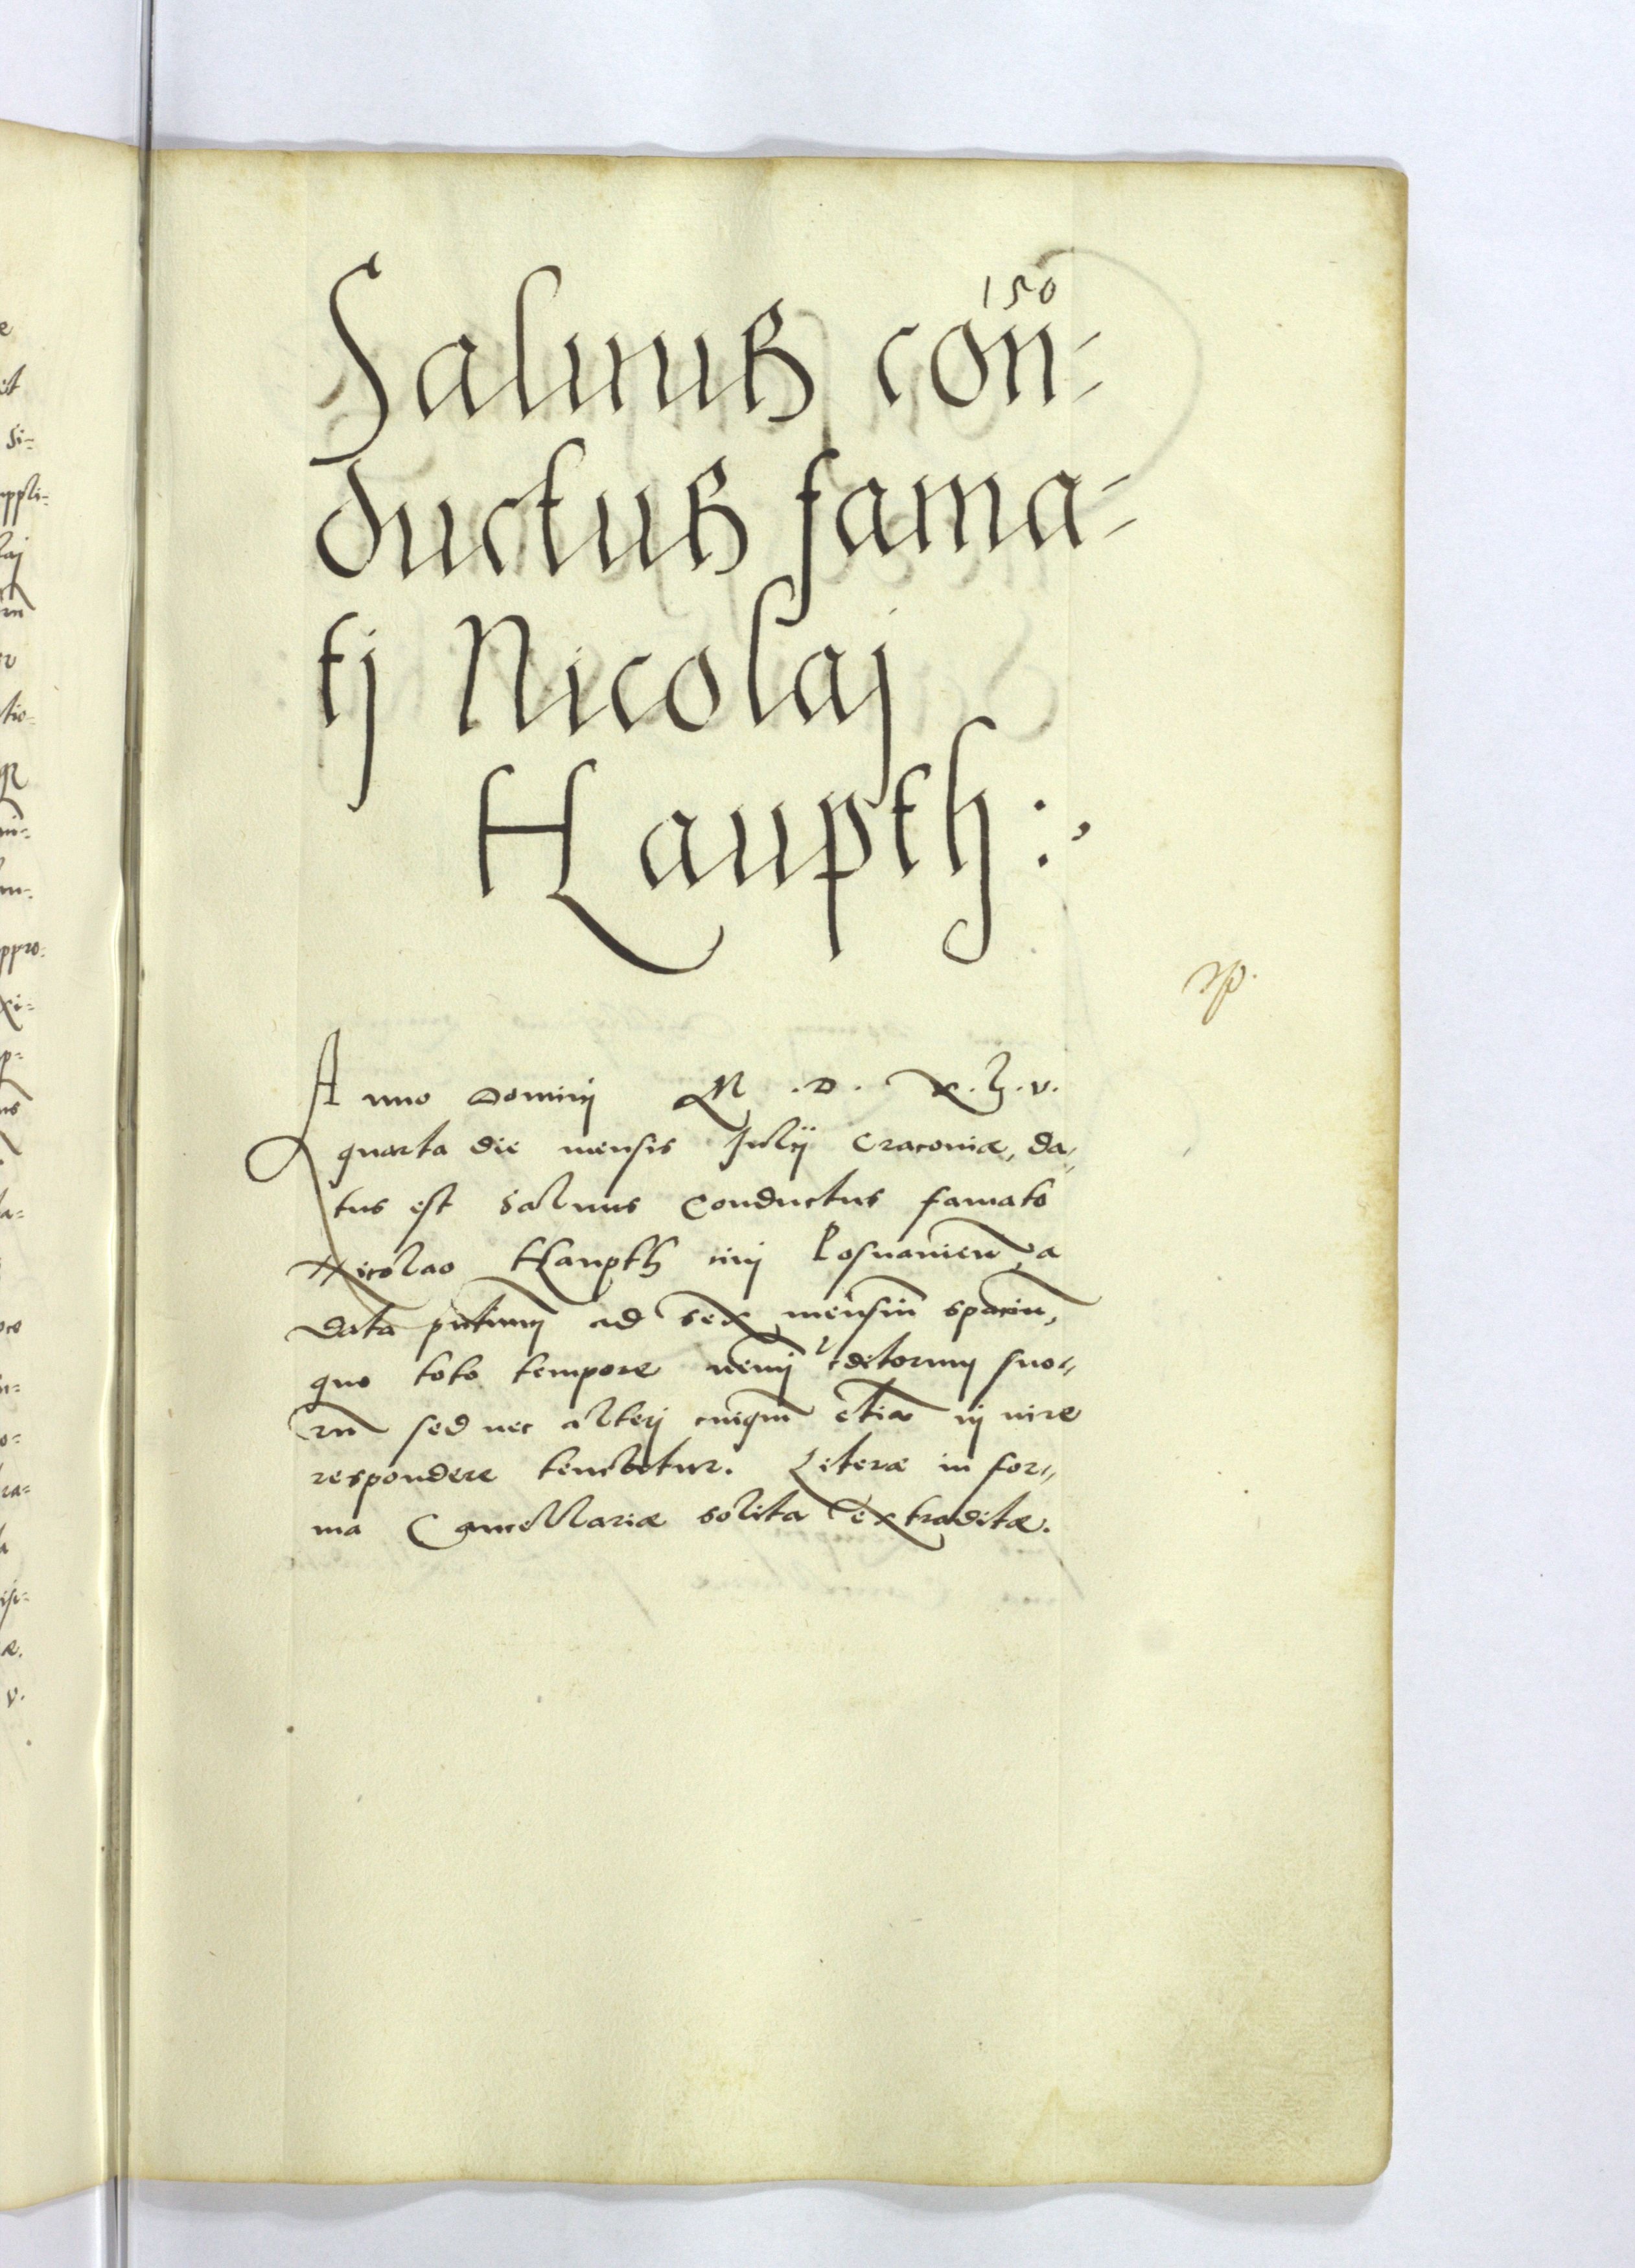 150
Saluus con-
ductus fama-
tj Nicolaj
Haupth:,
Anno Dominj M.D.XL.v.
quarta die mensis Julij Cracoviæ, da-
tus est Saluus Conductus famato
Nicolao Haupth civj Posnanien a
data pntium ad sex mensiu spaciu,
quo toto tempore nemj cditorum suo-
ru sed nec alterj cuiqm etia in iure
respondere tenebetur. Literæ in for-
ma Cancellariæ solita extraditæ.